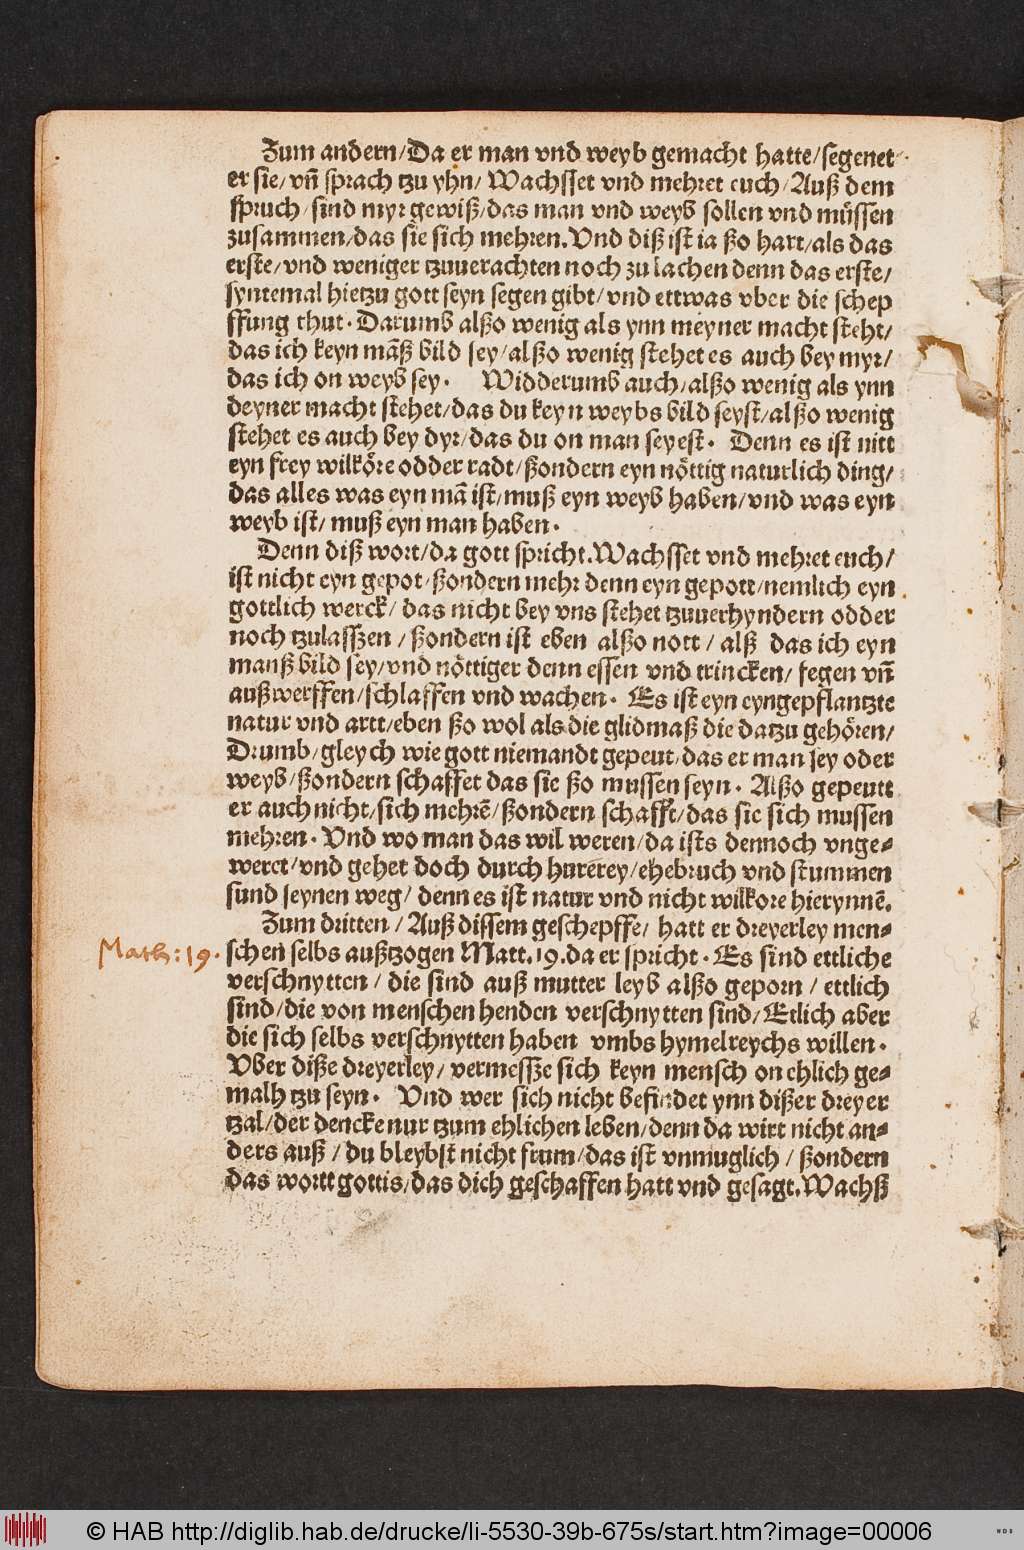 Zum andern/Da er man vnd weyb gemacht hatte/segenet
er sie/vn̄ sprach tzu yhn/ Wachsset vnd mehret euch/Auß dem
spruch/sind myr gewiß/das man vnd weyb sollen vnd müssen
zusammen/das sie sich mehren.Vnd diß ist ia ßo hart/als das
erste/vnd weniger tzuuerachten noch zu lachen denn das erste/
syntemal hietzu gott seyn segen gibt/vnd ettwas vber die schep
ffung thut. Darumb alßo wenig als ynn meyner macht steht/
das ich keyn mãß bild sey/alßo wenig stehet es auch bey myr/
das ich on weyb sey. Widderumb auch/alßo wenig als ynn
deyner macht stehet/das du keyn weybs bild seyst/alßo wenig
stehet es auch bey dyr/das du on man seyest. Denn es ist nitt
eyn frey wilköre odder radt/ßondern eyn nöttig naturlich ding/
das alles was eyn mã ist/muß eyn weyb haben/vnd was eyn
weyb ist/muß eyn man haben.
Denn diß wort/da gott spricht.Wachsset vnd mehret euch/
ist nicht eyn gepot/ßondern mehr denn eyn gepott/nemlich eyn
gottlich werck/ das nicht bey vns stehet tzuuerhyndern odder
noch tzulasszen / ßondern ist eben alßo nott / alß das ich eyn
manß bild sey/vnd nöttiger denn essen vnd trincken/ fegen vn̄
außwerffen/schlaffen vnd wachen. Es ist eyn eyngepflantzte
natur vnd artt/eben ßo wol als die glidmaß die datzu gehören/
Drumb/gleych wie gott niemandt gepeut/das er man sey oder
weyb/ßondern schaffet das sie ßo mussen seyn. Alßo gepeutt
er auch nicht/sich mehrẽ/ßondern schafft/das sie sich mussen
mehren. Vnd wo man das wil weren/da ists dennoch vnge-
weret/vnd gehet doch durch hurerey/ehebruch vnd stummen
sund seynen weg/ denn es ist natur vnd nicht wilkore hierynnẽ.
Zum dritten / Auß dissem geschepffe/ hatt er dreyerley men-
Math: 19. schen selbs außtzogen Matt.19.da er spricht. Es sind ettliche
verschnytten / die sind auß mutter leyb alßo geporn / ettlich
sind/die von menschen henden verschnytten sind/Etlich aber
die sich selbs verschnytten haben vmbs hymelreychs willen.
Vber diße dreyerley/ vermesze sich keyn mensch on ehlich ge-
malh tzu seyn. Vnd wer sich nicht befindet ynn dißer dreyer
tzal/der dencke nur tzum ehlichen leben/denn da wirt nicht an-
ders auß / du bleybst nicht frum/das ist vnmuglich / ßondern
das wortt gottis/das dich geschaffen hatt vnd gesagt.Wachß
© HAB http://diglib.hab.de/drucke/li-5530-39b-675s/start.htm?image=00006